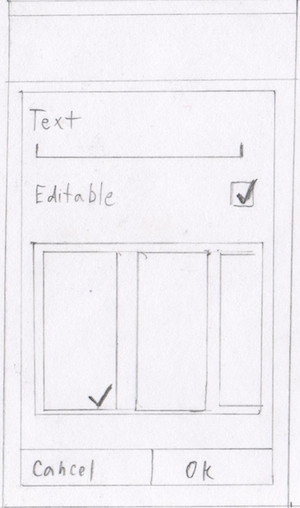 Text
Editable
Cancel
Ok